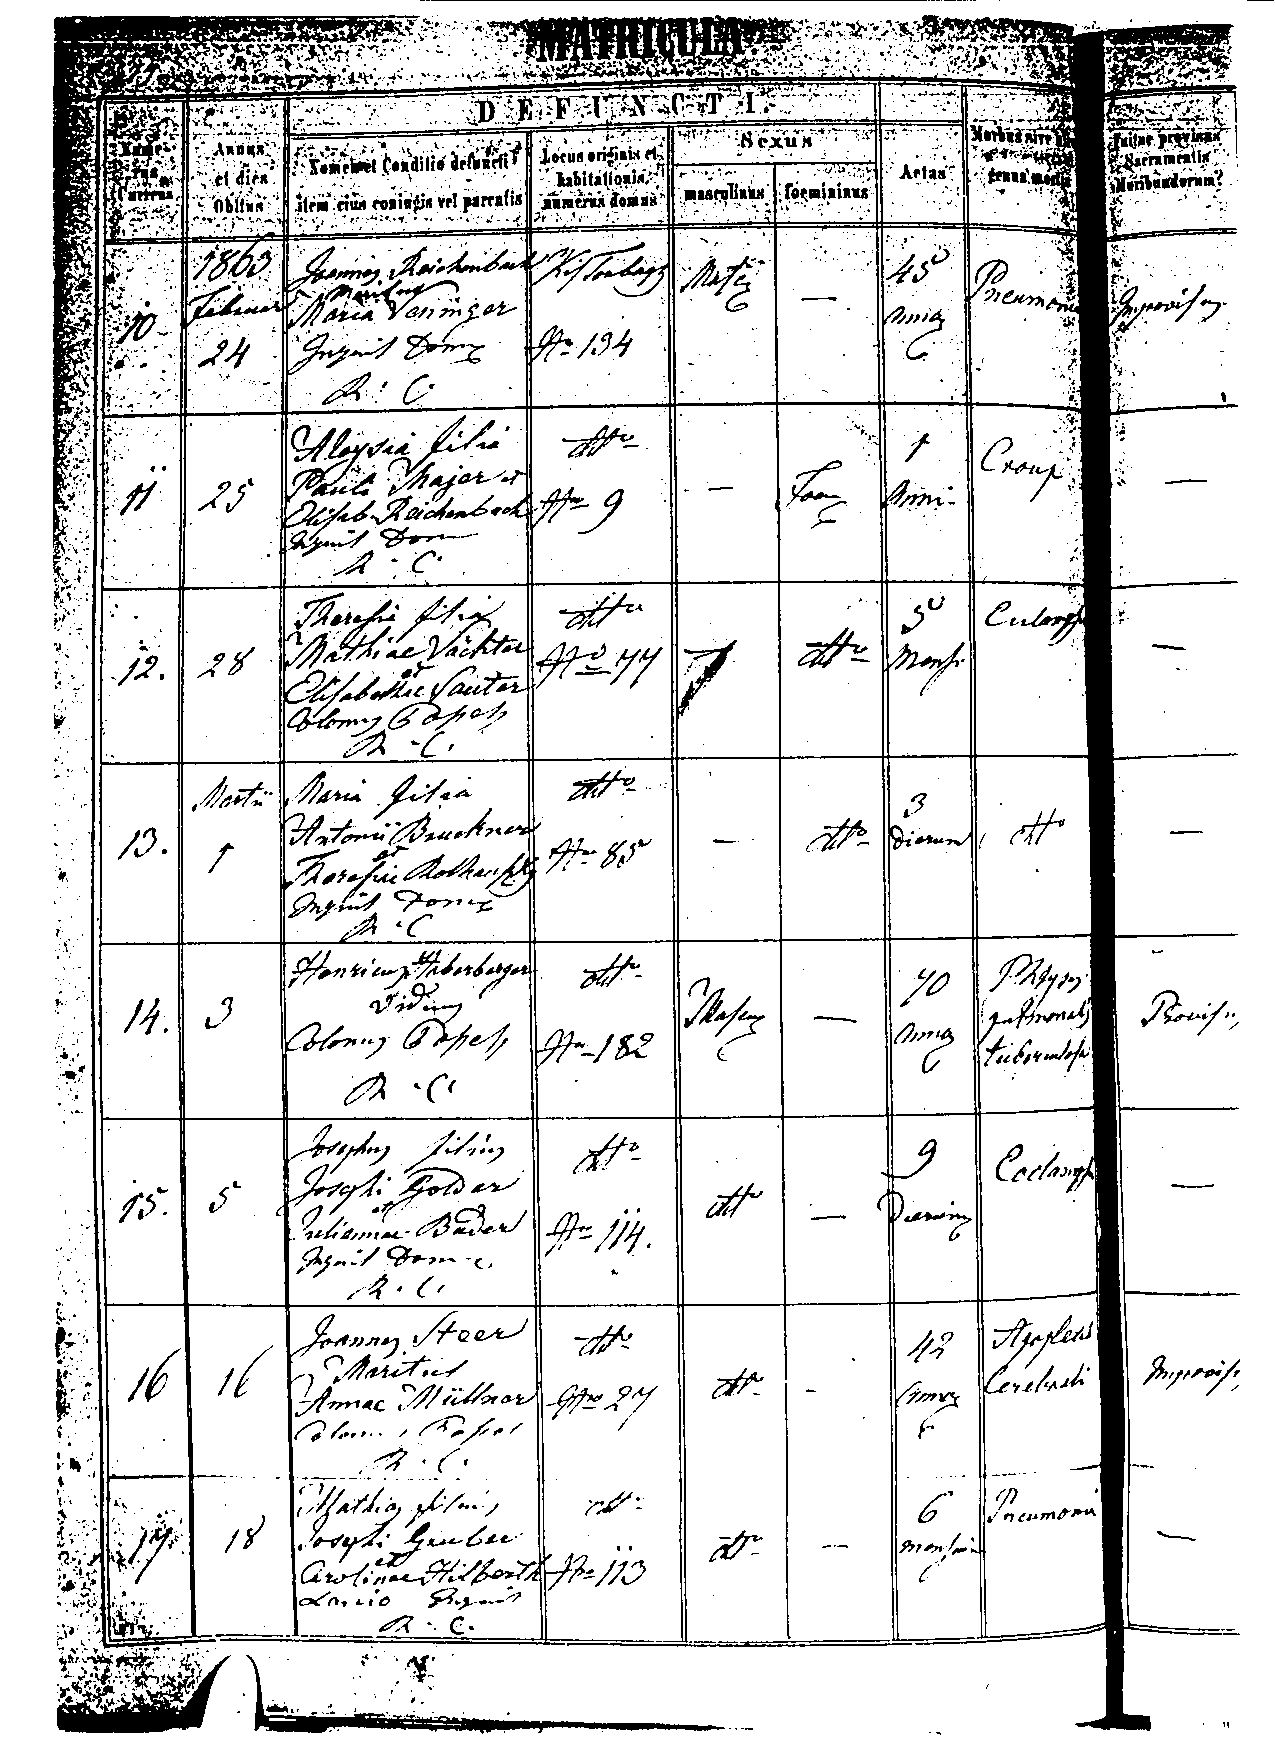 MATRICULA
DEFUNCTI.
Numerus Currens
Annus et dies Obitus
Nomen et Conditio defuncti item eius coniugis vel parentis
Locus originis et habitationis, numerus domus
Sexus
masculinus
foemininus
Aetas
Morbus sive
genus mortis
Fuitne provisus Sacramentis Moribundorum?
10.
1863
Februar
24
Joannes Reichenbach
Maritus
Maria Veninger
Inquil Domq
R: C.
Kis Torbagy
No 134
Mas
—
45
anno
Pneumonia
Improvisus
11
25
Aloysia filia
Pauli Majer et
Elisab Reichenbach
Inquil Dom
R. C.
dtto
No 9
—
Foem
1
Anni
Croup
—
12.
28
Theresia filia
Mathiae Vächter
et
Elisabethae Sauter
Colonus
R. C.
dtto
No 77
dtto
5
Mensi
Eclamps
—
13.
Martii
1
Maria filia
Antonii Bruckner
et
Theresiae
Inquil Domq
R. C.
dtto
No 85
—
dtto
3
dierum
dtto
—
14.
3
Henricus Haberberger
Viduus
Colonus
R. C.
dtto
No 182
Masc
—
70
anno
Phtysis
pulmonalis
tuberculosa
Provisus
15.
5
Josephus filius
Josephi Golder
et
Julianna Bader
Inquil Dom
R. C.
dtto
No 114.
dtto
—
9
Dierum
Eclamps
—
16
16
Joannes Steer
Maritus
Annae Müllner
Colonus
R. C.
dtto
No 27
dtto
-
42
anno
Apoplexis
Cerebrali
Improvis
17.
18
Mathias filius
Josephi Gruber
et
Carolinae Hilberth
Inquil
R. C.
dtto
No 113
dtto
—
6
mensium
Pneumonia
—